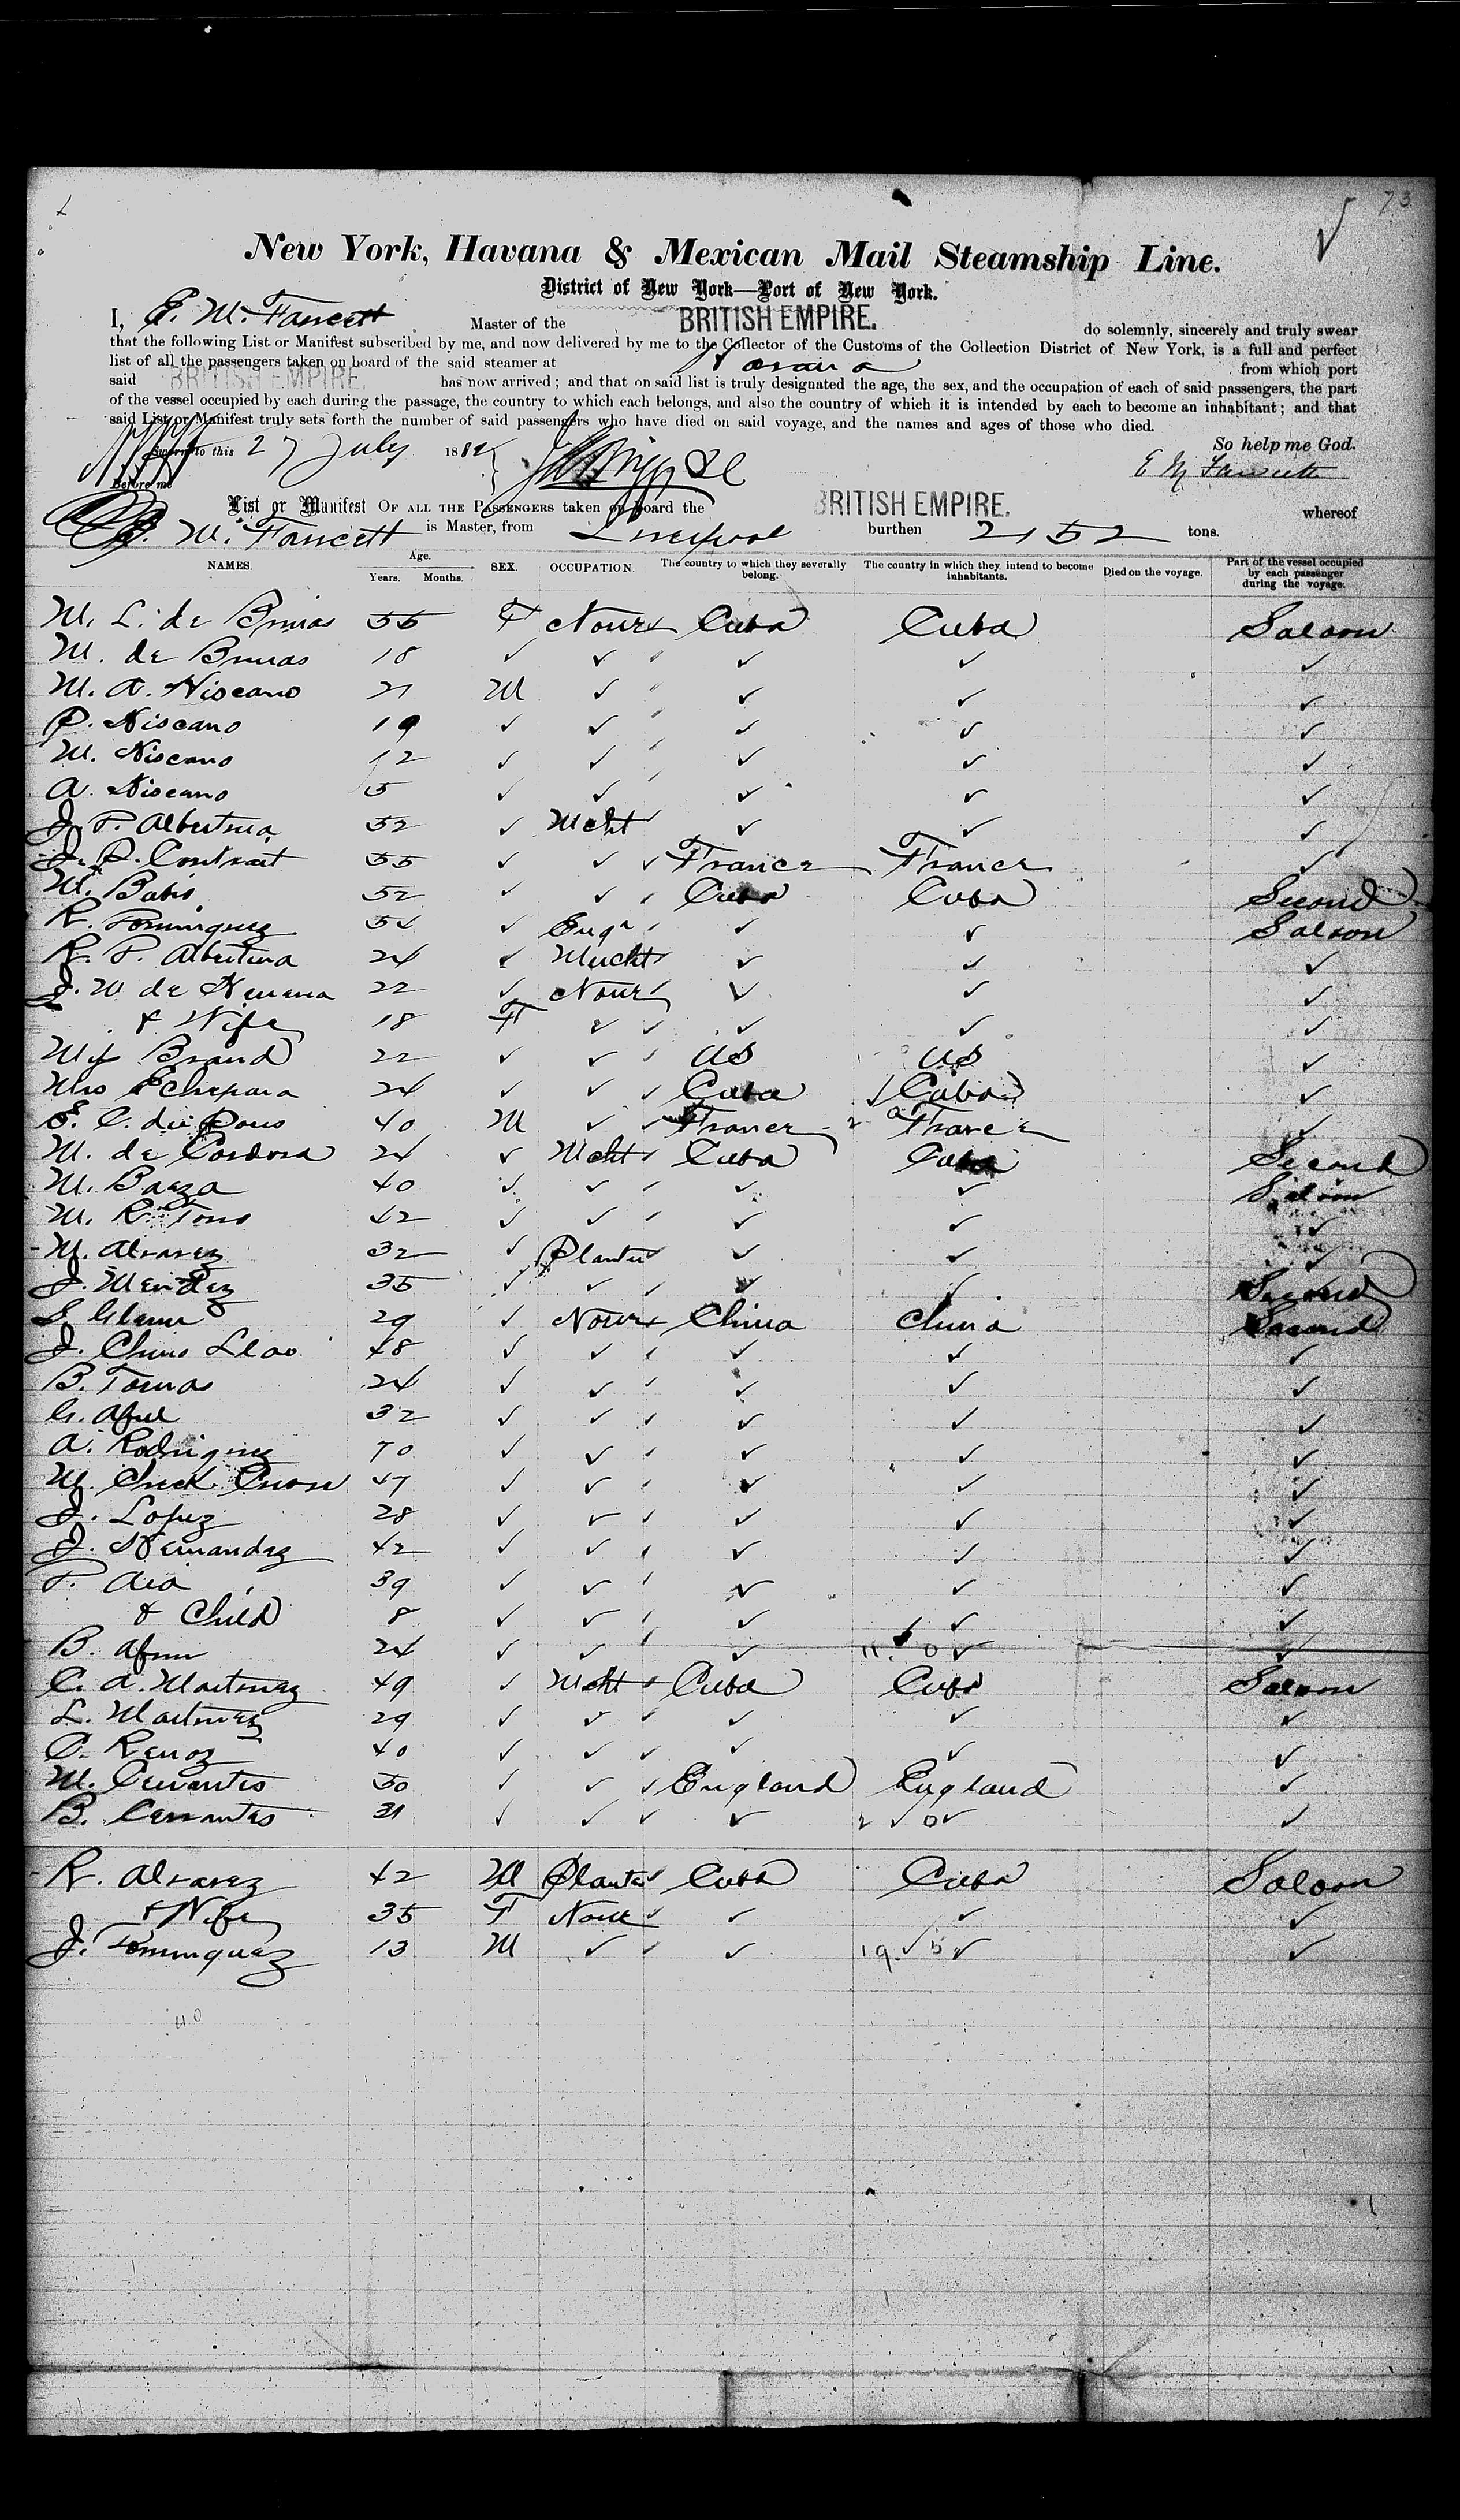 73
New York, Havana & Mexican Mail Steamship Line.
District of New York—Port of New York.
I, E. M. Fawcett Master of the BRITISH EMPIRE. do solemnly, sincerely and truly swear
that the following List or Manifest subscribed by me, and now delivered by me to the Collector of the Customs of the Collection District of New York, is a full and perfect
list of all the passengers taken on board of the said steamer at Havana from which port
said BRITISH EMPIRE. has now arrived; and that on said list is truly designated the age, the sex, and the occupation of each of said passengers, the part
of the vessel occupied by each during the passage, the country to which each belongs, and also the country of which it is intended by each to become an inhabitant; and that
said List or Manifest truly sets forth the number of said passengers who have died on said voyage, and the names and ages of those who died.
Sworn to this 27 July 1882 So help me God.
Before me E M Fawcett
List or Manifest OF ALL THE PASSENGERS taken on board the BRITISH EMPIRE. whereof
E. M. Fawcett is Master, from Liverpool burthen 2152 tons.
NAMES. Age. Years. Months. SEX. OCCUPATION. The country to which they severally belong. The country in which they intend to become inhabitants. Died on the voyage. Part of the vessel occupied by each passenger during the voyage.
M. L. de 55 F None Cuba Cuba Saloon
M. de 18 ✓ ✓ ✓ ✓ ✓
M. A. 21 M ✓ ✓ ✓ ✓
P. 19 ✓ ✓ ✓ ✓ ✓
M. 12 ✓ ✓ ✓ ✓ ✓
A. 5 ✓ ✓ ✓ ✓ ✓
J. P. Albertina 52 ✓ Mcht ✓ ✓ ✓
J. P. Contrait 55 ✓ ✓ ✓ France France ✓
M. Babis 52 ✓ ✓ Cuba Cuba Second
R. Dominguez 54 ✓ Engr ✓ ✓ Saloon
R. P. Albertina 24 ✓ Mercht ✓ ✓ ✓
J. W de 22 ✓ None ✓ ✓ ✓
& Wife 18 F ✓ ✓ ✓ ✓ ✓
Brand 22 ✓ ✓ US US ✓
Mrs Echepara 24 ✓ ✓ ✓ Cuba Cuba ✓
E. C. du Pous 40 M ✓ ✓ France France ✓
M. de Cordova 24 ✓ Mcht Cuba Cuba Second
M. Baeza 40 ✓ ✓ ✓ ✓ Saloon
M. R. Tons 42 ✓ ✓ ✓ ✓ ✓
M. Alvarez 32 ✓ Planter ✓ ✓ ✓
J. Mendez 35 ✓ ✓ ✓ ✓ Second
29 ✓ None China China Second
J. Chino Llao 48 ✓ ✓ ✓ ✓ ✓
B. Tomas 24 ✓ ✓ ✓ ✓ ✓
G. 32 ✓ ✓ ✓ ✓ ✓
A. Rodriguez 70 ✓ ✓ ✓ ✓ ✓
M. Chuck 47 ✓ ✓ ✓ ✓ ✓
J. Lopez 28 ✓ ✓ ✓ ✓ ✓ ✓
J. Hernandez 42 ✓ ✓ ✓ ✓ ✓
P. Aia 39 ✓ ✓ ✓ ✓ ✓
& Child 8 ✓ ✓ ✓ ✓ ✓
B. 24 ✓ ✓ ✓ 11. 0 ✓ ✓
C. A. Martinez 49 ✓ Mcht Cuba Cuba Saloon
L. Martinez 29 ✓ ✓ ✓ ✓ ✓ ✓
C. 40 ✓ ✓ ✓ ✓ ✓ ✓
M. Cervantes 50 ✓ ✓ ✓ England England ✓
B. Cervantes 31 ✓ ✓ ✓ ✓ 2 ✓ 0 ✓ ✓
R. Alvarez 42 M Planter Cuba Cuba Saloon
& Wife 35 F None ✓ ✓ ✓ ✓
J. Dominguez 13 M ✓ ✓ ✓ 19 ✓ 5 ✓ ✓
40